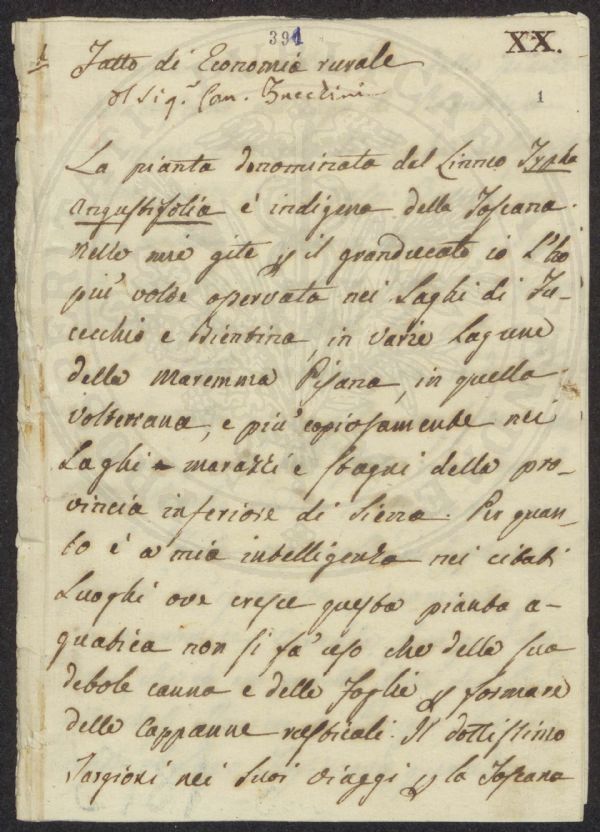 391
XX.
1
Fatto di Economia rurale
Del Sig.r Can. Zucchini
La pianta denominata dal Linneo Typha
angustifolia è indigena della Toscana.
Nelle mie gite p il granducato io l'ho
più volte osservata nei Laghi di Fu-
cecchio e Bientina, in varie Lagune
della Maremma Pisana, in quella
Volterrana, e più copiosamente nei
Laghi marazzi e stagni della pro-
vincia inferiore di Siena. Per quan-
to è a mia intelligenza nei citati
Luoghi ove cresce questa pianta a-
quatica non si fa' uso che della sua
debole canna e delle foglie p formare
delle Cappanne rusticali. Il dottissimo
Targioni nei suoi viaggi p la Toscana